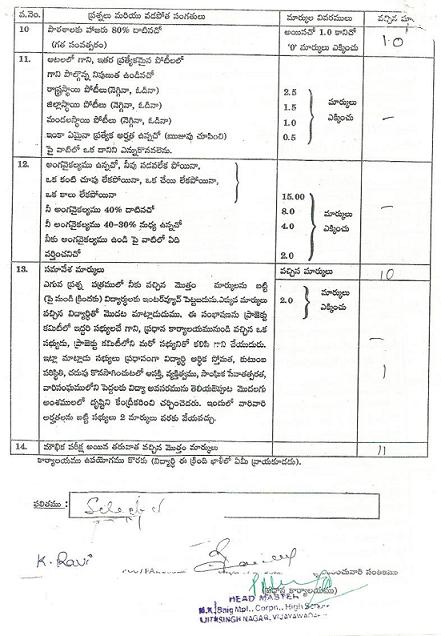 ప.నెం. ప్రశ్నలు మరియు వడపోత సంగతులు మార్కుల వివరములు వచ్చిన మా.
10 పాఠశాలకు హాజరు 80% దాటినచో అయినచో 1.0 కానిచో 1.0
(గత సంవత్సరం) '0' మార్కులు ఎక్కించు
11. ఆటలలో గాని, ఇతర ప్రత్యేకమైన పోటీలలో
గాని పాల్గొన్న నిపుణత ఉండినచో
రాష్ట్రస్థాయి పోటీలు(నెగ్గినా, ఓడినా) 2.5
జిల్లాస్థాయి పోటీలు(నెగ్గినా, ఓడినా) 1.5 మార్కులు
మండలస్థాయి పోటీలు (నెగ్గినా, ఓడినా) 1.0 ఎక్కించు –
ఇంకా ఏమైనా ప్రత్యేక అర్హత ఉన్నచో (ఋజువు చూపించి) 0.5
పై వాటిలో ఒక దానిని ఎన్నుకొనవలెను.
12. అంగవైకల్యము ఉన్నచో, నీవు నడవలేక పోయినా,
ఒక కంటి చూపు లేకపోయినా, ఒక చేయి లేకపోయినా,
ఒక కాలు లేకపోయినా 15.00
నీ అంగవైకల్యము 40% దాటినచో 8.0 మార్కులు –
నీ అంగవైకల్యము 40-30% మధ్య ఉన్నచో 4.0 ఎక్కించు
నీకు అంగవైకల్యము ఉండి పై వాటిలో ఏది
వర్తించనిచో 2.0
13. సమావేశ మార్కులు వచ్చిన మార్కులు 10
ఎగువ ప్రశ్న పత్రములో నీకు వచ్చిన మొత్తం మార్కులను బట్టి 2.0 మార్కులు
(పై నుండి క్రిందకు) విద్యార్థులకు ఇంటర్వ్యూకై పెట్టబడును.ఎక్కువ మార్కులు ఎక్కించు
వచ్చిన విద్యార్థితో మొదట మాట్లాడుదుము. ఈ సంభాషణను ప్రాజెక్టు
కమిటీలో ఇద్దరి సభ్యులచే గాని, ప్రధాన కార్యాలయమునుండి వచ్చిన ఒక –
సభ్యుడు, ప్రాజెక్టు కమిటీలోని మరో సభ్యునితో కలిసి గాని చేయుదురు.
ఇట్లా మాట్లాడు సభ్యులు ప్రధానంగా విద్యార్థి ఆర్థిక స్తోమత, కుటుంబ 1
పరిస్థితి, చదువు కొనసాగించుటలో ఆసక్తి, వ్యక్తిత్వము, సాంఘిక సేవాతత్పరత,
వారిసంఘములోని పెద్దలకు విద్యా అవసరమును తెలియజెప్పుట మొదలగు
అంశములలో దృష్టిని కేంద్రీకరించి చర్చించెదరు. ఇందులో వారివారి
అర్హతలను బట్టి సభ్యులు 2 మార్కులు వరకు వేయవచ్చు.
14. మౌఖిక పరీక్ష అయిన తరువాత వచ్చిన మొత్తం మార్కులు 11
కార్యాలయము ఉపయోగము కొరకు (విద్యార్థి ఈ క్రింది ఖాళీలో ఏమీ వ్రాయకూడదు).
ఫలితము :
K. Ravi
(ప్రధాన కార్యాలయము)
HEAD MASTER
Mpl., Corpn., High
SINGH NAGAR, VIJAYAWADA